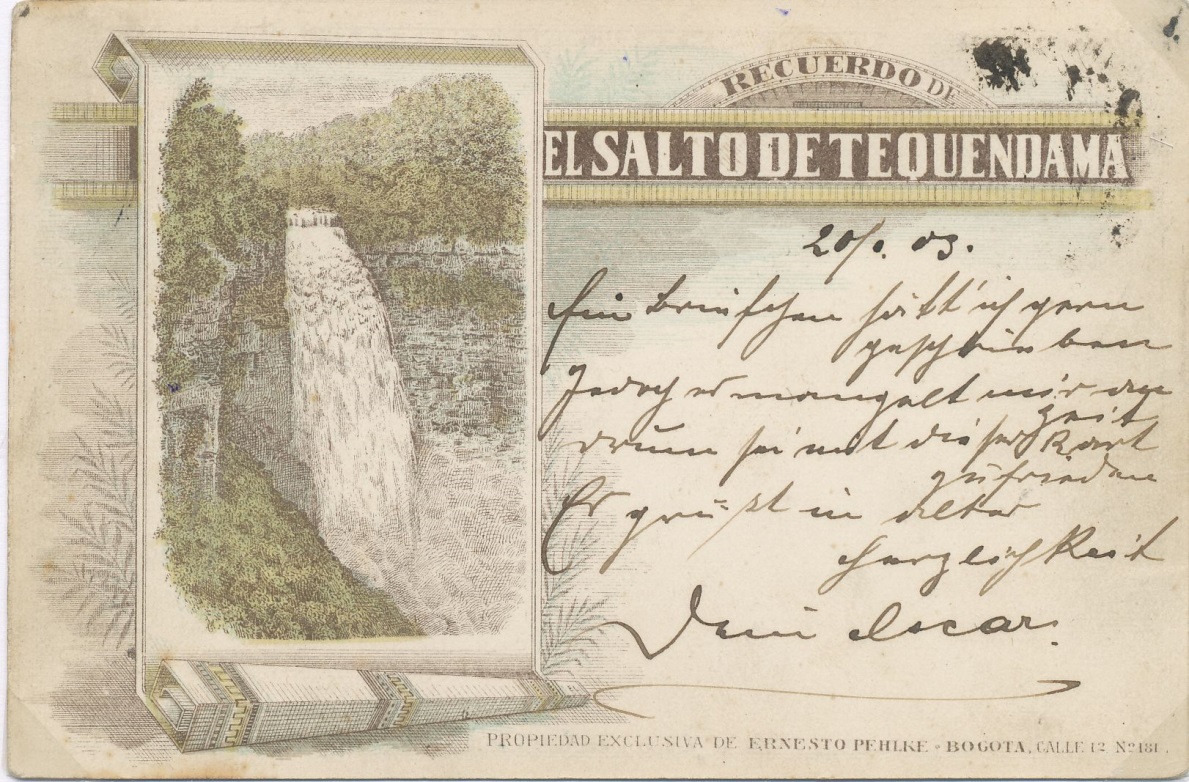 RECUERDO DE
EL SALTO DE TEQUENDAMA
03.
Ein Briefchen hätt' ich gern
geschrieben
Jedoch er mangelt mir die
Zeit
drum sei mit dieser Kart
zufrieden
Er grüßt in alter
Herzlichkeit
Dein Oscar.
PROPIEDAD EXCLUSIVA DE ERNESTO PEHLKE - BOGOTA, CALLE 12 Nº 181.